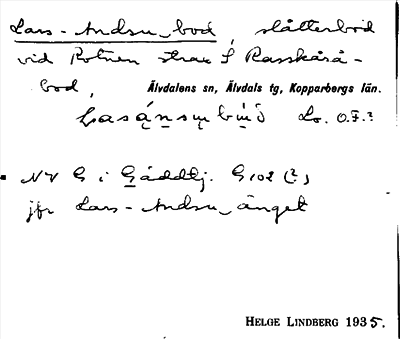 Lars-Andsu_bod, slåtterbod
vid Rotnen strax S Rasskårå-
bod, Älvdalens sn, Älvdals tg, Kopparbergs län.
Lo. O.F.?
NV G i Gåddtj. G102 (?),
jfr Lars-Andsu_änget
HELGE LINDBERG 1935.